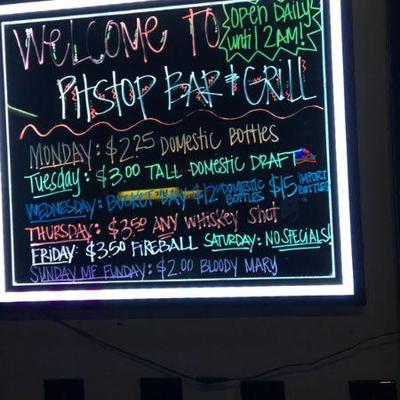 WELCOME TO
OPEN DAILY
until 12AM!
PITSTOP BAR & GRILL
MONDAY: $2.25 DOMESTIC BOTTLES
Tuesday: $3.00 TALL DOMESTIC DRAFT
WEDNESDAY: BUCKET DAY $12 DOMESTIC BOTTLES $15 IMPORT BOTTLES
THURSDAY: $3.50 ANY WHISKEY SHOT
FRIDAY: $3.50 FIREBALL SATURDAY: NO SPECIALS!
SUNDAY MF FUNDAY: $2.00 BLOODY MARY